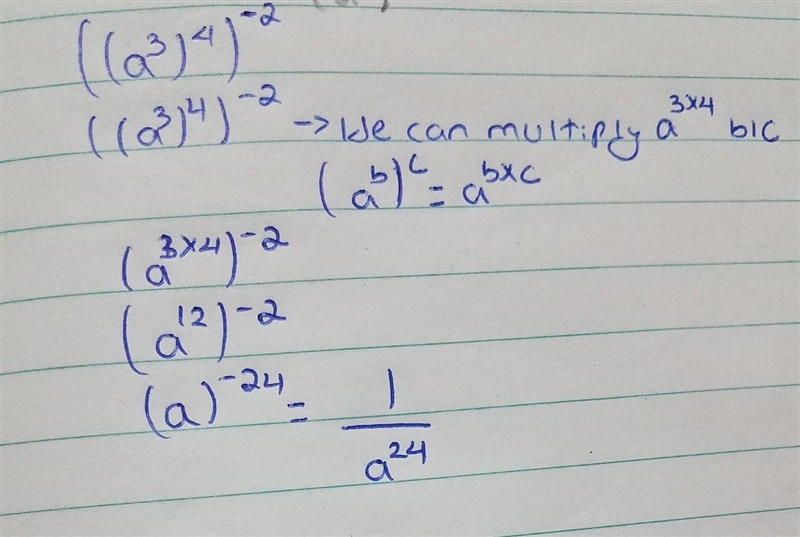 ((a³)⁴)⁻²
((a³)⁴)⁻² → We can multiply a³ˣ⁴ b/c
(aᵇ)ᶜ = aᵇˣᶜ
(a³ˣ⁴)⁻²
(a¹²)⁻²
(a)⁻²⁴ = 1/a²⁴